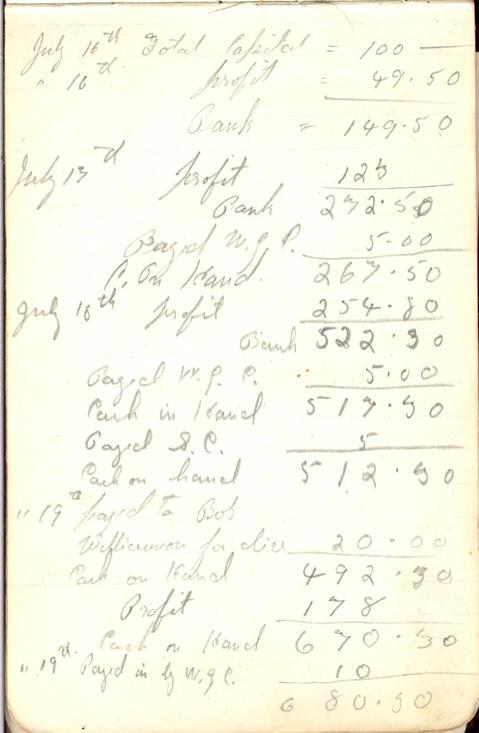 July 16th Total Capital = 100 —
" 16th profit = 49.50
Bank = 149.50
July 17 profit 123
Bank 272.50
Payed W.G.C. 5.00
C. On Hand. 267.50
July 18th profit 254.80
Bank 522.30
Payed W.G.C. 5.00
Cash in Hand 517.30
Payed S.C. 5
Cash on hand 512.30
" 19th payed to Bob
for 20.00
Cash on Hand 492.30
Profit 178
Cash on Hand 670.30
" 19th Payed in by W.G.C. 10
680.30